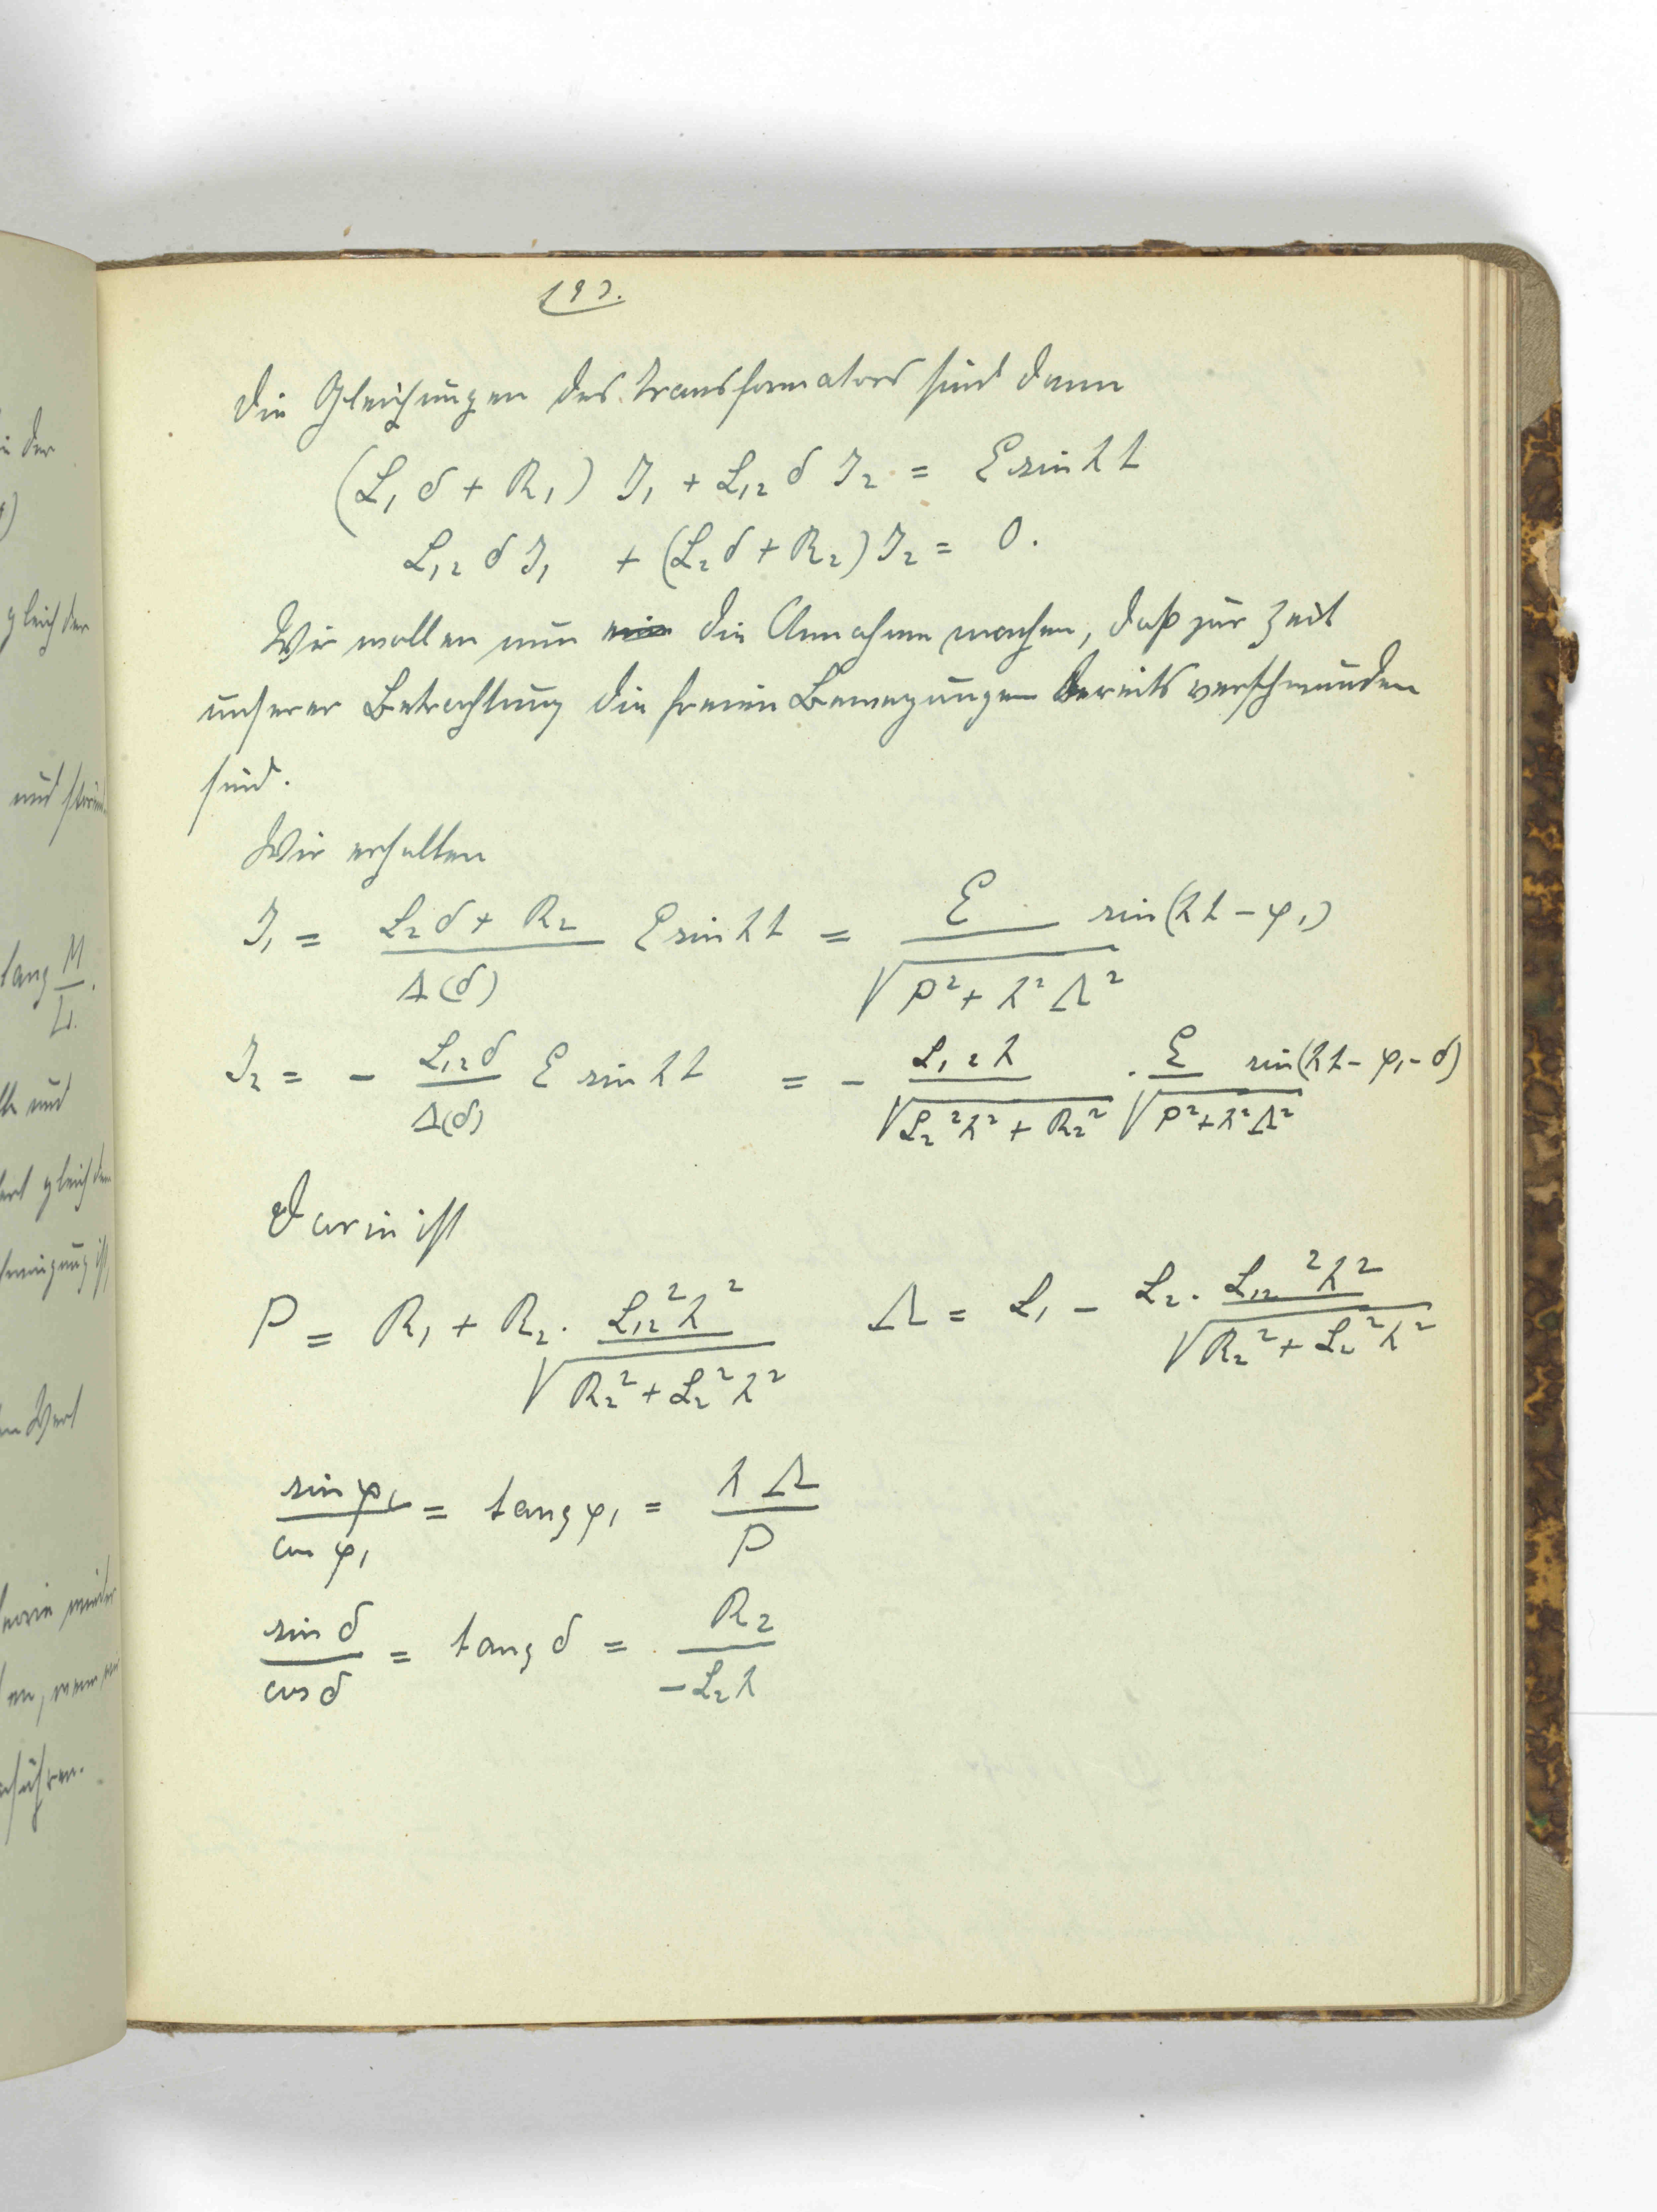 193.
Die Gleichungen des Transformators sind dann
(L₁ δ + R₁) J₁ + L₁₂ δ J₂ = E sin λ t
L₁₂ δ J₁ + (L₂ δ + R₂) J₂ = 0.
Wir wollen nun die Annahme machen, daß zur Zeit
unserer Betrachtung die freien Bewegungen bereits verschwunden
sind.
Wir erhalten
J₁ = (L₂ δ + R₂)/Δ(δ) E sin λ t = E/√(P² + λ² Λ²) sin(λ t − φ₁)
J₂ = − L₁₂ δ/Δ(δ) E sin λ t = − L₁₂ λ/√(L₂² λ² + R₂²) · E/√(P² + λ² Λ²) sin(λ t − φ₁ − δ)
Darin ist
P = R₁ + R₂ · L₁₂² λ²/√(R₂² + L₂² λ²) Λ = L₁ − L₂ · L₁₂² λ²/√(R₂² + L₂² λ²)
sin φ₁/cos φ₁ = tang φ₁ = λ Λ/P
sin δ/cos δ = tang δ = R₂/−L₂ λ
gleich der
und
tang M/L.
und
gleich
Wert